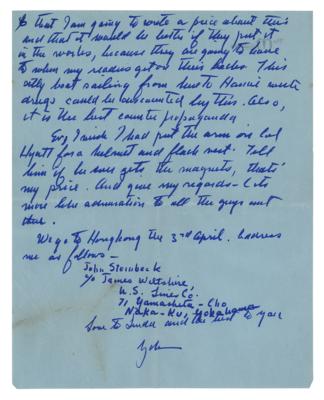 that I am going to write a piece about this
and that it would be better if they put it
in the works, because they are going to have
to when my readers get on their backs. This
silly boat sailing from here to Hanoi with
drugs could be discounted by this. Also,
it is the best counter propaganda
Evy, I wish I had put the arm on Col
Hyatt for a helmet and flack vest. Told
him if he ever gets the magnets, that's
my price. And give my regards — Lots
more like admiration to all the guys out
there.
We go to Hongkong the 3rd April. Address
me as follows —
John Steinbeck
c/o James Wiltshire,
U.S. Lines Co.
71, Yamashita-Cho
Naka-Ku, Yokohama
Love to and the best to you
John